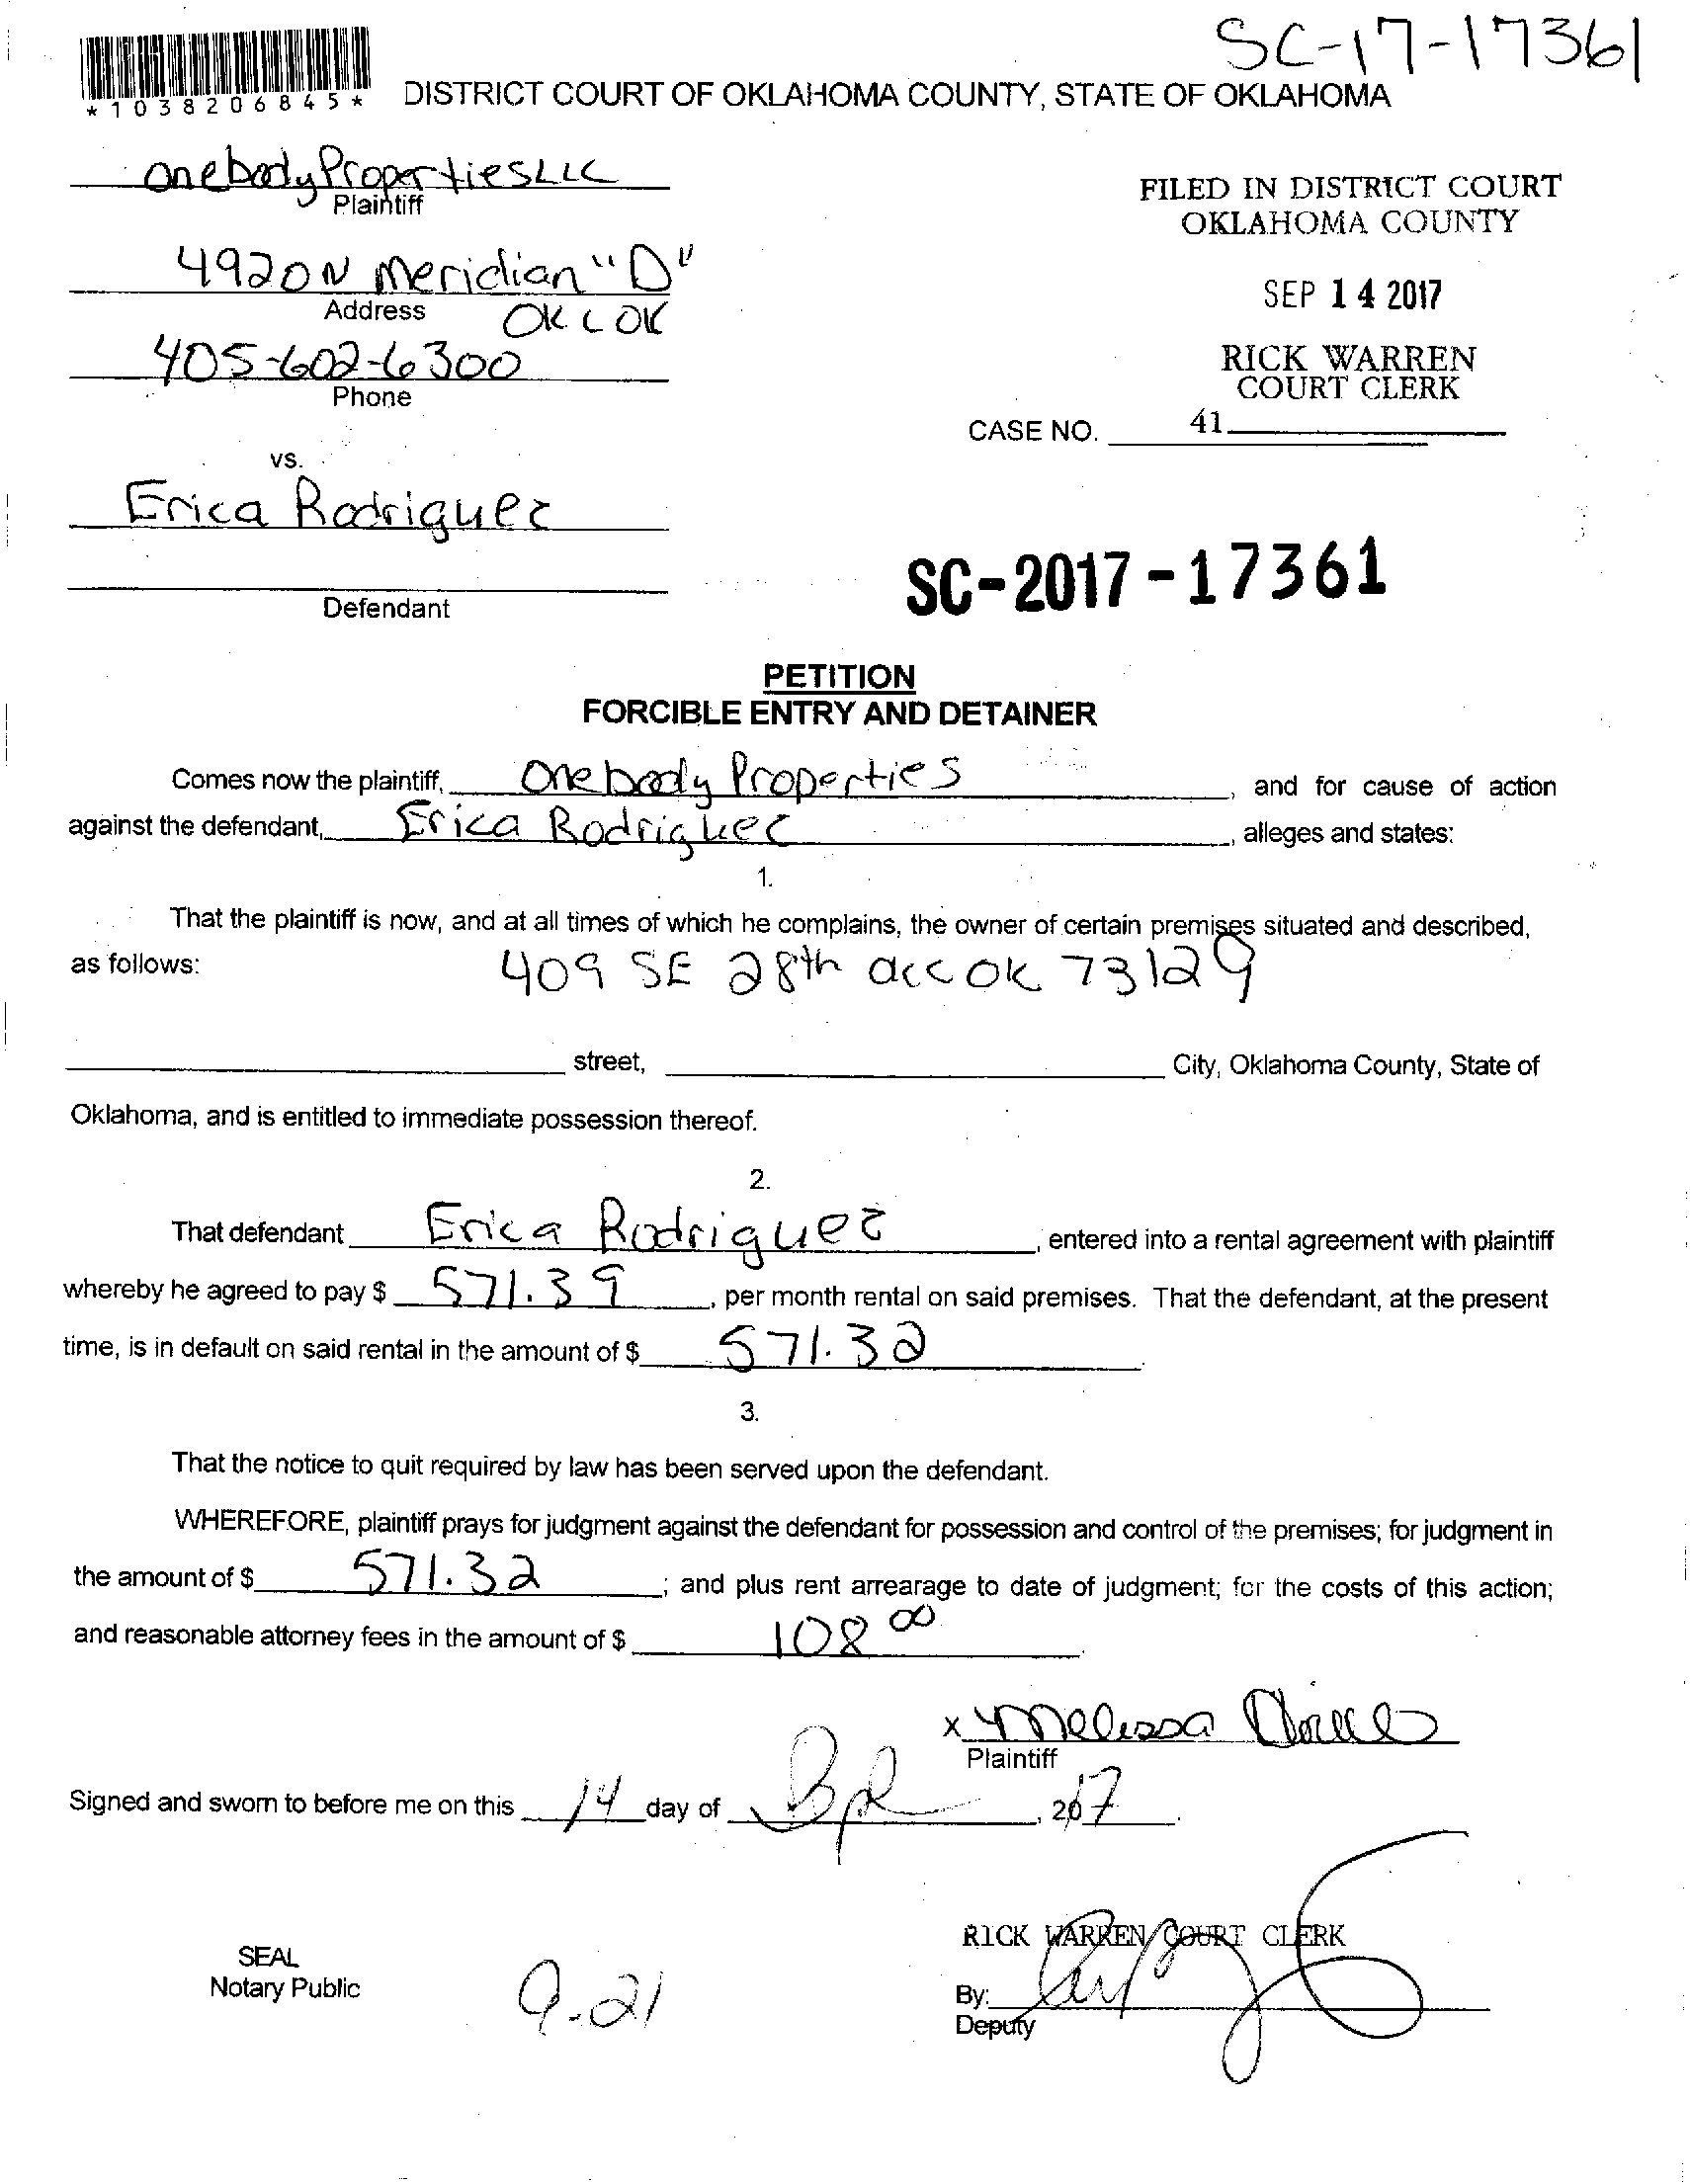 SC-17-17361
*1038206845*
DISTRICT COURT OF OKLAHOMA COUNTY, STATE OF OKLAHOMA
onebody Properties LLC
Plaintiff
FILED IN DISTRICT COURT
OKLAHOMA COUNTY
4920 N Meridian "D"
Address
OKC OK
SEP 14 2017
405-602-6300
Phone
RICK WARREN
COURT CLERK
CASE NO. 41
vs.
Erica Rodriguez
Defendant
SC-2017-17361
PETITION
FORCIBLE ENTRY AND DETAINER
Comes now the plaintiff, Onebody Properties, and for cause of action
against the defendant, Erica Rodriguez, alleges and states:
1.
That the plaintiff is now, and at all times of which he complains, the owner of certain premises situated and described,
as follows: 409 SE 28th OCC OK 73129
street, City, Oklahoma County, State of
Oklahoma, and is entitled to immediate possession thereof.
2.
That defendant Erica Rodriguez, entered into a rental agreement with plaintiff
whereby he agreed to pay $ 571.39, per month rental on said premises. That the defendant, at the present
time, is in default on said rental in the amount of $ 571.32.
3.
That the notice to quit required by law has been served upon the defendant.
WHEREFORE, plaintiff prays for judgment against the defendant for possession and control of the premises; for judgment in
the amount of $ 571.32; and plus rent arrearage to date of judgment; for the costs of this action;
and reasonable attorney fees in the amount of $ 108 00.
x Melissa
Plaintiff
Signed and sworn to before me on this 14 day of, 2017.
RICK WARREN COURT CLERK
SEAL
Notary Public
9-21
By:
Deputy